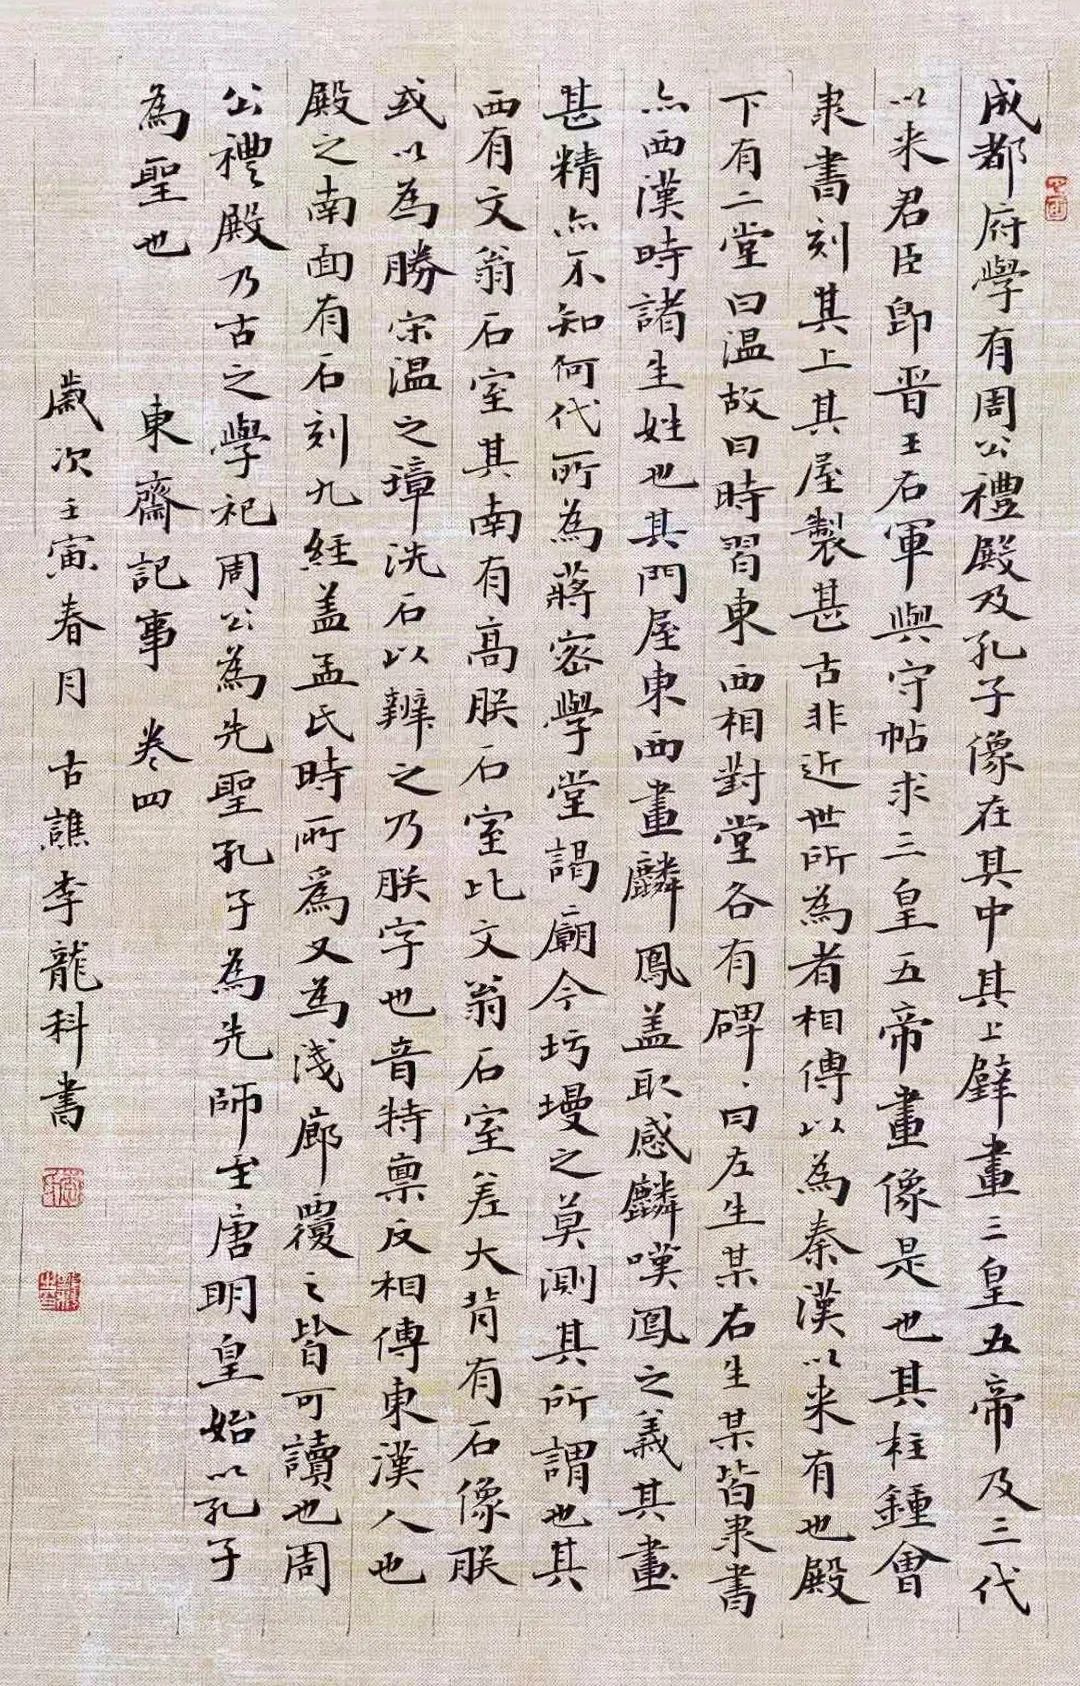 成都府學有周公禮殿及孔子像在其中其上壁畫三皇五帝及三代
以来君臣即晉王右軍與守帖求三皇五帝畫像是也其柱鍾會
隶書刻其上其屋製甚古非近世所為者相傳以為秦漢以来有也殿
下有二堂曰温故曰時習東西相對堂各有碑、曰左生某右生某皆隶書
亦西漢時諸生姓也其門屋東西畫麟鳳盖取感麟嘆鳳之義其畫
甚精亦不知何代所為蔣密學堂謁廟令圬墁之莫測其所謂也其
西有文翁石室其南有高朕石室比文翁石室差大背有石像朕
或以為勝宋温之璋洗石以辨之乃朕字也音特稟反相傳東漢人也
殿之南面有石刻九經盖孟氏時所為又為淺廊覆之皆可讀也周
公禮殿乃古之學祀周公為先聖孔子為先師至唐明皇始以孔子
為聖也
東齋記事 卷四
歲次壬寅春月 古譙李龍科書